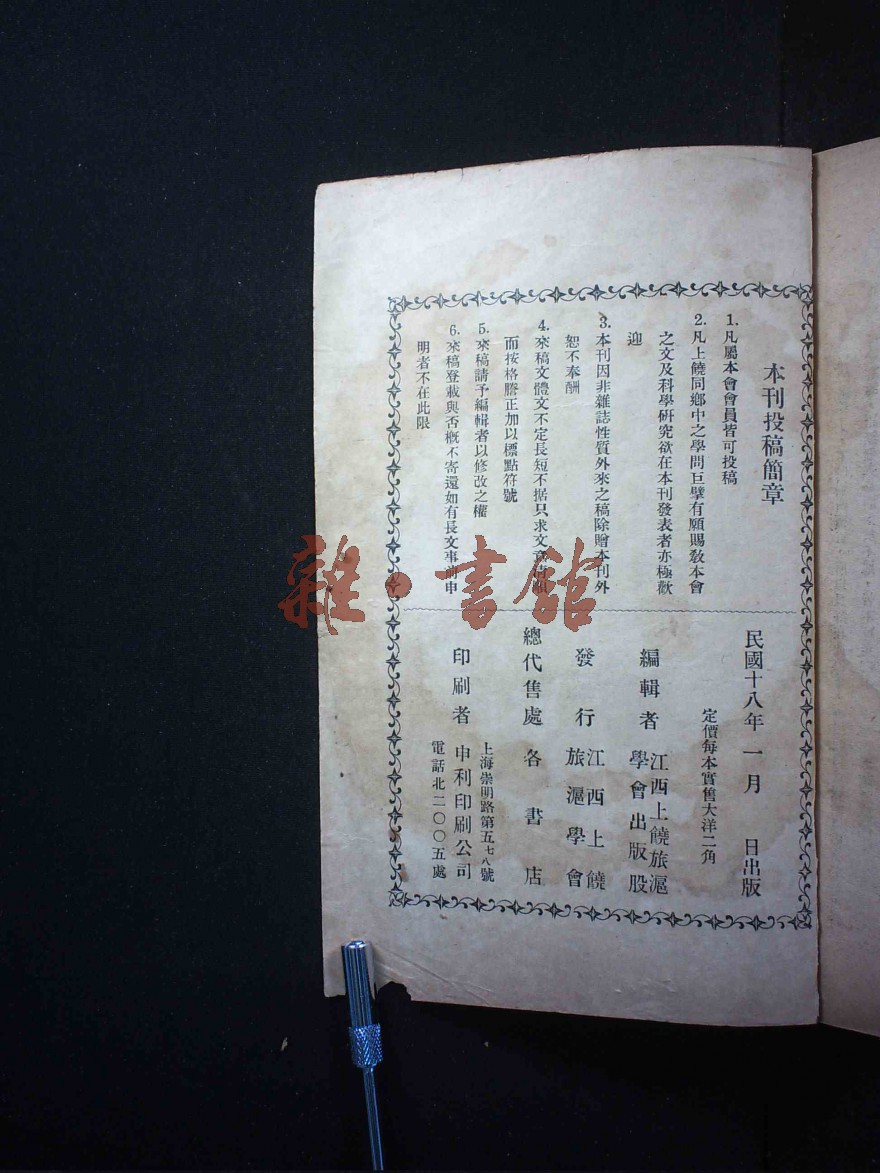 本刊投稿簡章
1. 凡屬本會會員皆可投稿
2. 凡上饒同鄉中之學問巨擘有願賜教本會
之文及科學研究欲在本刊發表者亦極歡
迎
3. 本刊因非雜誌性質外來之稿除贈本刊外
恕不奉酬
4. 來稿文體文不定長短不拘只求文意清順
而按格謄正加以標點符號
5. 來稿請予編輯者以修改之權
6. 來稿登載與否概不寄還如有長文事前申
明者不在此限
民國十八年一月 日出版
定價每本實售大洋二角
編輯者 江西上饒旅滬
學會出版股
發行 江西上饒
旅滬學會
總代售處 各書店
上海崇明路第五七八號
印刷者 申利印刷公司
電話北二〇〇五處
雜·書館